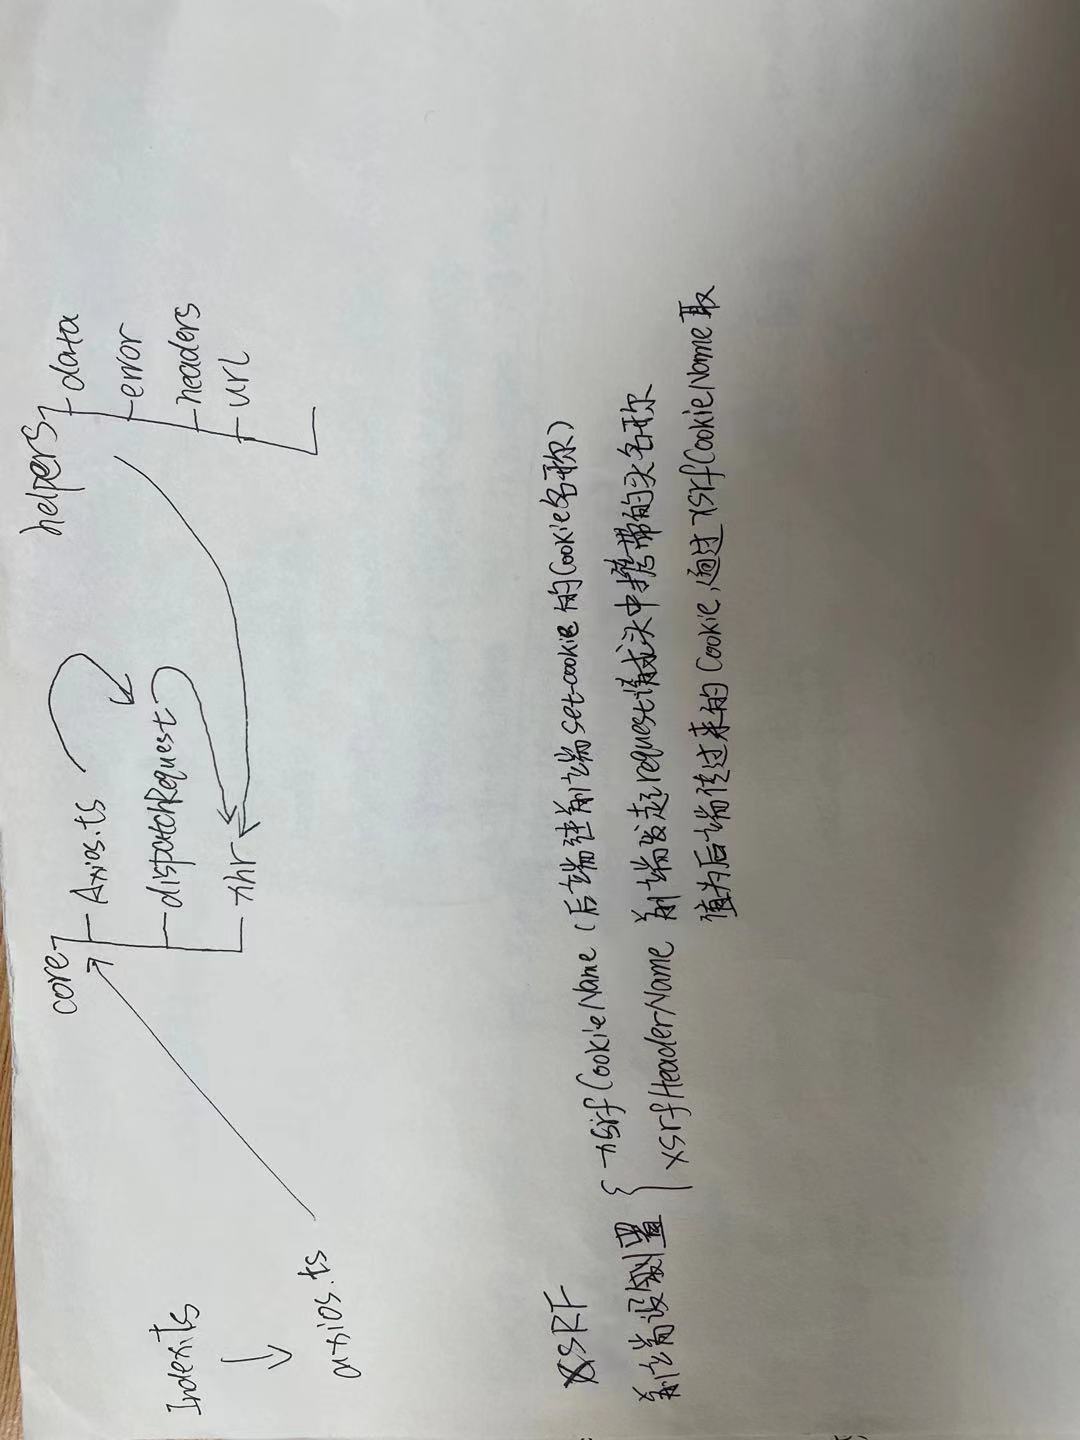 Index.ts
axios.ts
core
Axios.ts
dispatchRequest
xhr
helpers
data
error
headers
url
XSRF
前端设置
xsrfCookieName (后端往前端set-cookie的Cookie名称)
xsrfHeaderName 前端发起request请求头中携带的头名称
值为后端传过来的Cookie,通过xsrfCookieName取